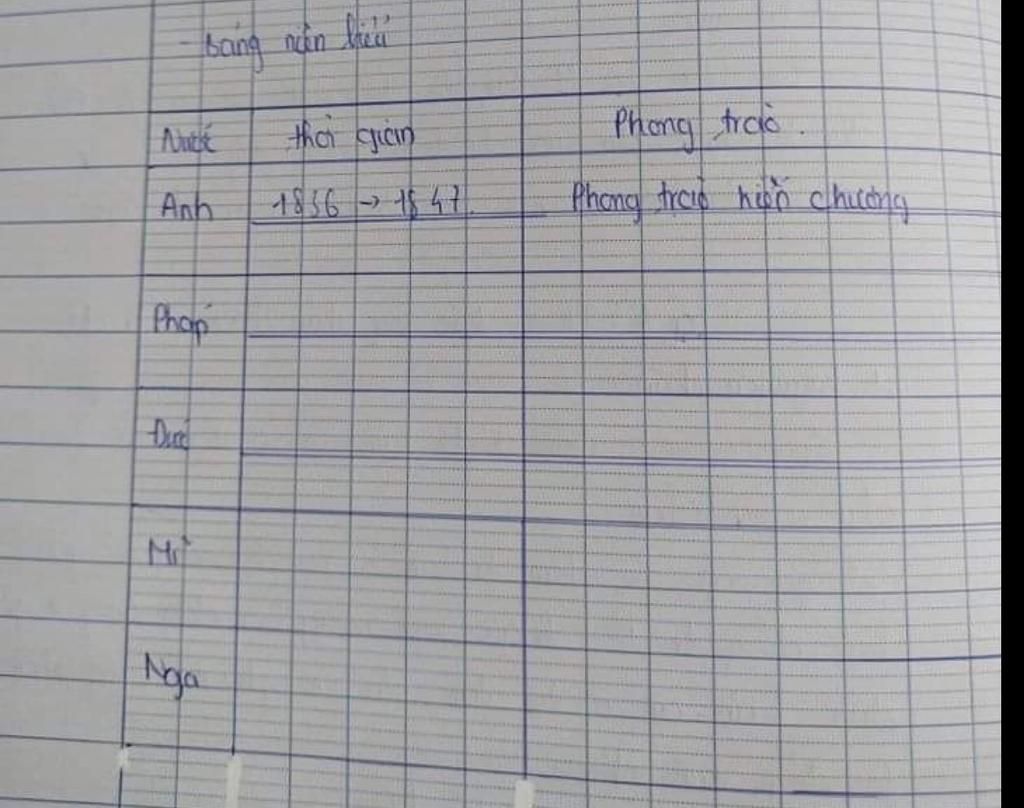 - Bảng niên biểu
Nước thời gian Phong trào.
Anh 1836 → 1847 Phong trào hiến chương
Pháp
Đức
Mĩ
Nga